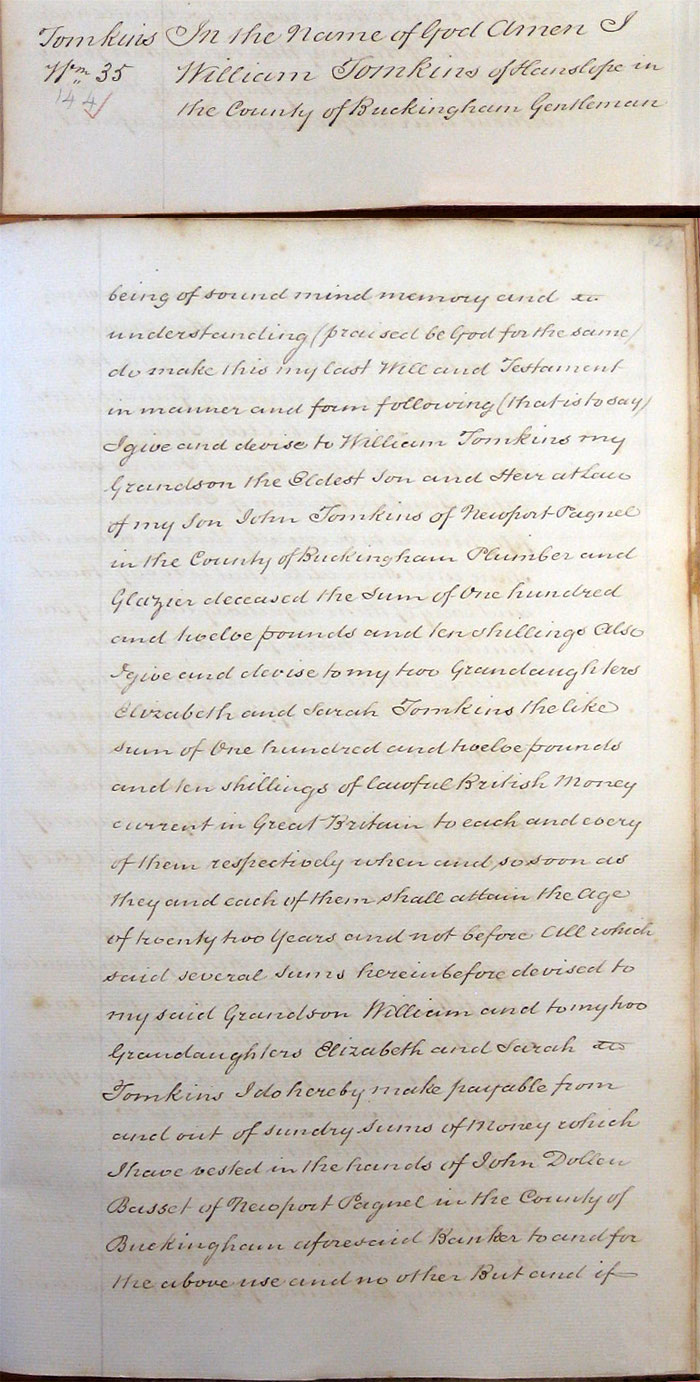 Tomkins In the Name of God Amen I
Wm 35 William Tomkins of Hanslope in
144 the County of Buckingham Gentleman
being of sound mind memory and
understanding (praised be God for the same)
do make this my last Will and Testament
in manner and form following (that is to say)
I give and devise to William Tomkins my
Grandson the Eldest Son and Heir at Law
of my Son John Tomkins of Newport Pagnel
in the County of Buckingham Plumber and
Glazier deceased the Sum of One hundred
and twelve pounds and ten shillings Also
I give and devise to my two Grandaughters
Elizabeth and Sarah Tomkins the like
sum of One hundred and twelve pounds
and ten shillings of lawful British Money
current in Great Britain to each and every
of them respectively when and so soon as
they and each of them shall attain the Age
of twenty two Years and not before All which
said several Sums hereinbefore devised to
my said Grandson William and to my two
Grandaughters Elizabeth and Sarah
Tomkins I do hereby make payable from
and out of sundry sums of Money which
I have vested in the hands of John Dollen
Basset of Newport Pagnel in the County of
Buckingham aforesaid Banker to and for
the above use and no other But and if